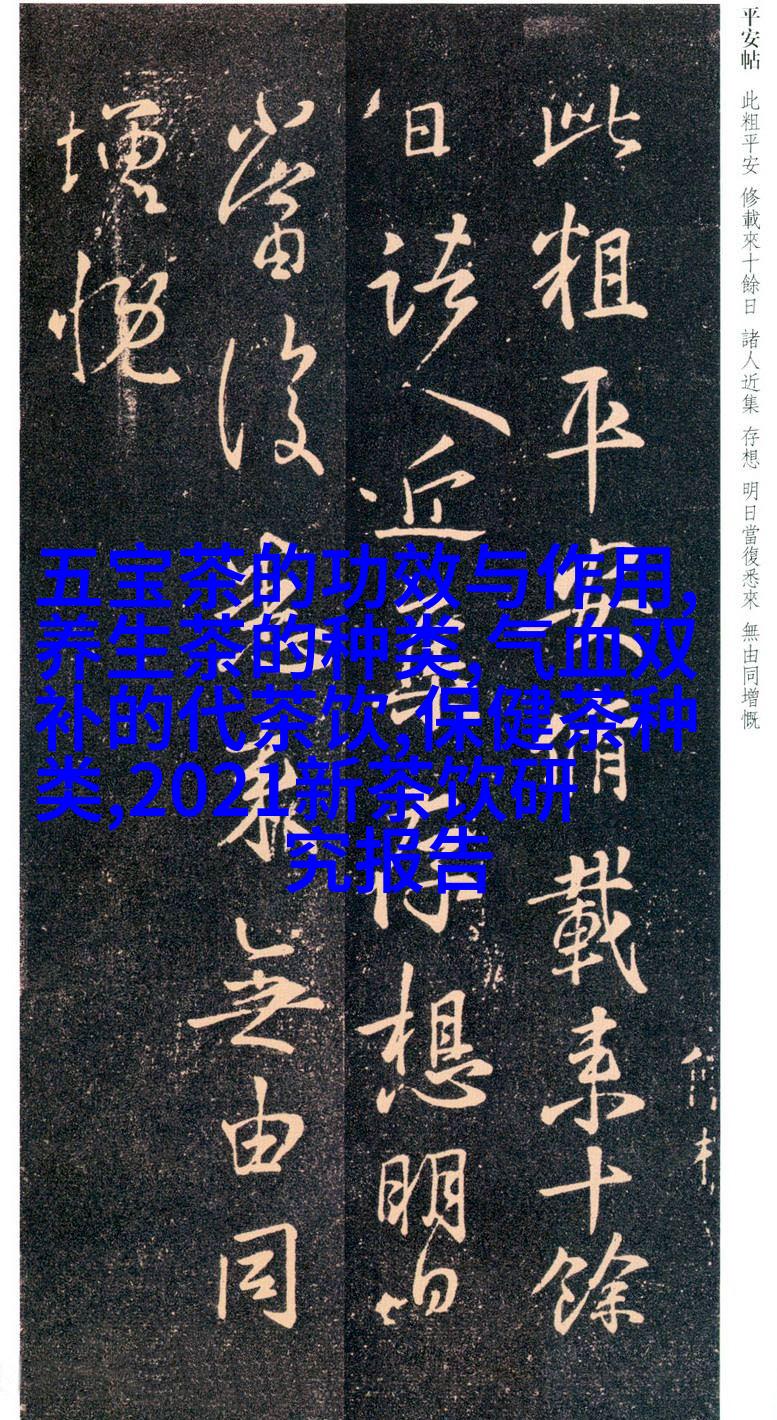 平安帖 此粗平安 修載來十餘日 諸人近集 存想 明日當復悉來 無由同增慨
此粗平安脩載来十餘
日諸人近集存想明日
當復悉来無由同
增慨
五宝茶的功效与作用,
养生茶的种类,气血双
补的代茶饮,保健茶种
类,2021新茶饮研
究报告